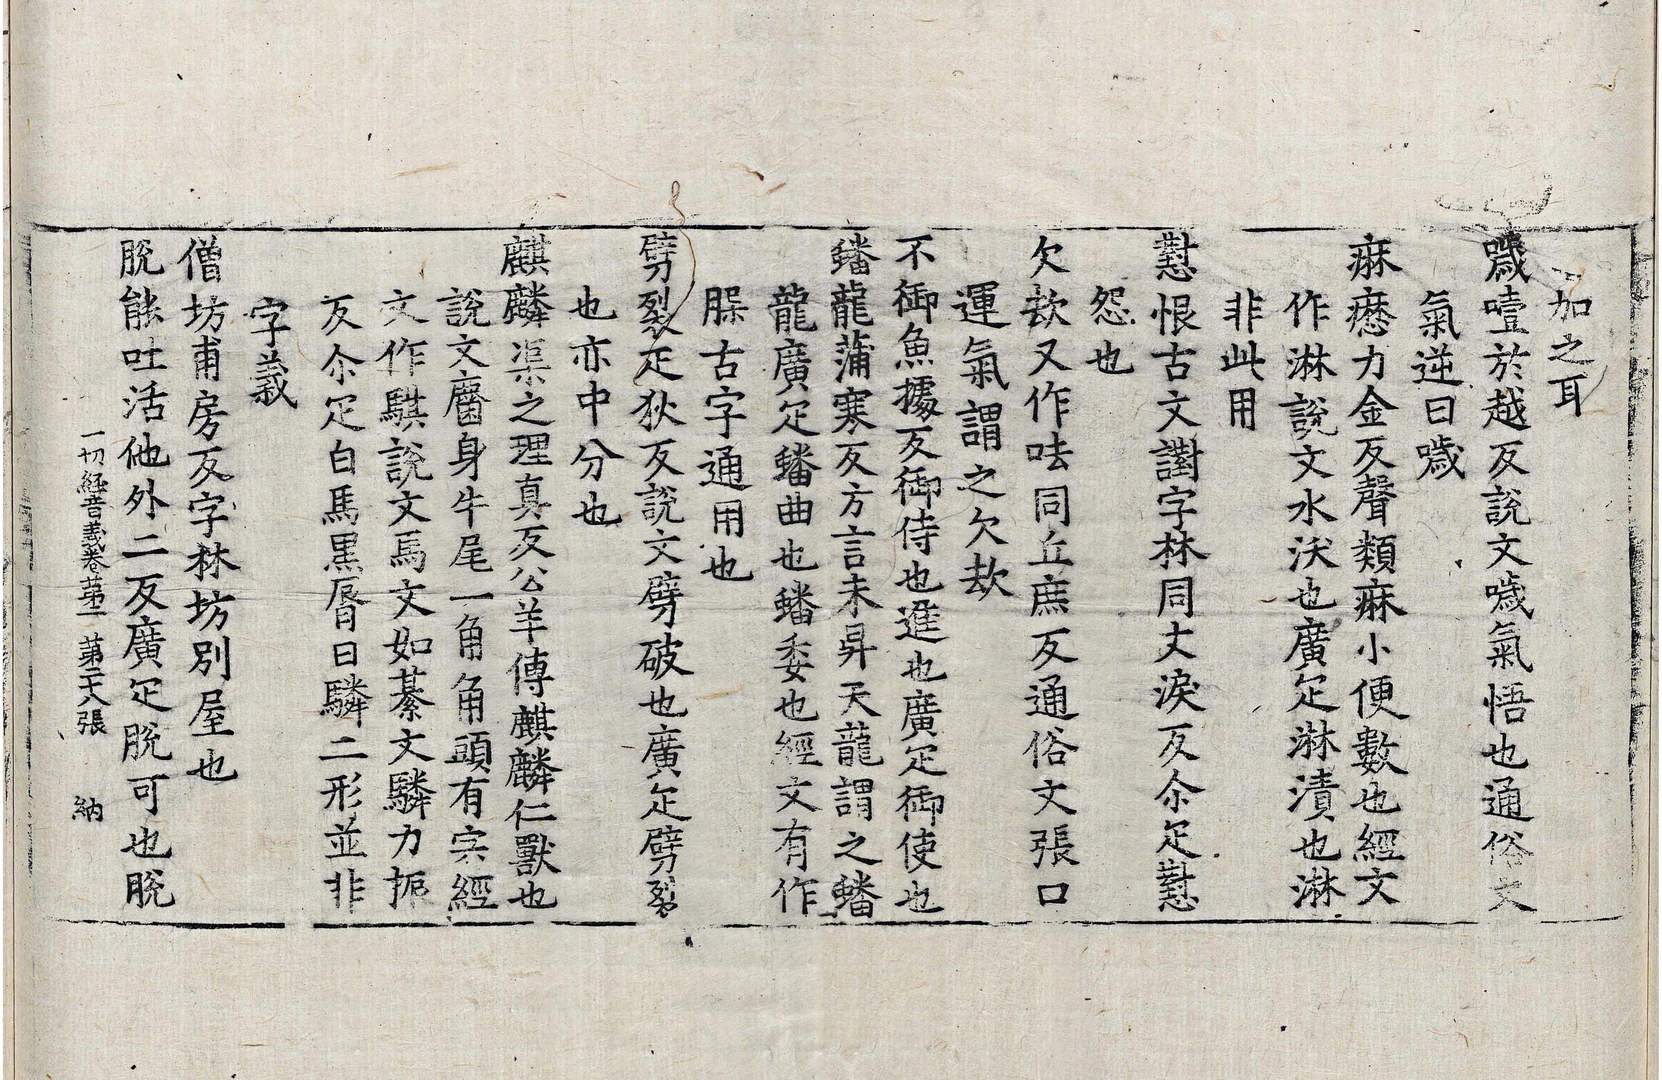 加之耳
噦噎於越反說文噦氣悟也通俗文
氣逆曰噦
痳㿊力金反聲類痳小便數也經文
作淋說文水沃也廣疋淋漬也淋
非此用
懟恨古文譵字林同丈淚反尒疋懟
怨也
欠㰦又作呿同丘庶反通俗文張口
運氣謂之欠㰦
不御魚據反御侍也進也廣疋御使也
蟠龍蒲寒反方言未昇天龍謂之蟠
龍廣疋蟠曲也蟠委也經文有作
古字通用也
劈裂疋狄反說文劈破也廣疋劈裂
也亦中分也
麒麟渠之理真反公羊傳麒麟仁獸也
說文麕身牛尾一角角頭有宍經
文作騏說文馬文如綦文驎力振
反尒疋白馬黑脣曰驎二形並非
字義
僧坊甫房反字林坊別屋也
脫能吐活他外二反廣疋脫可也脫
一切經音義卷第一 第二十八張 納